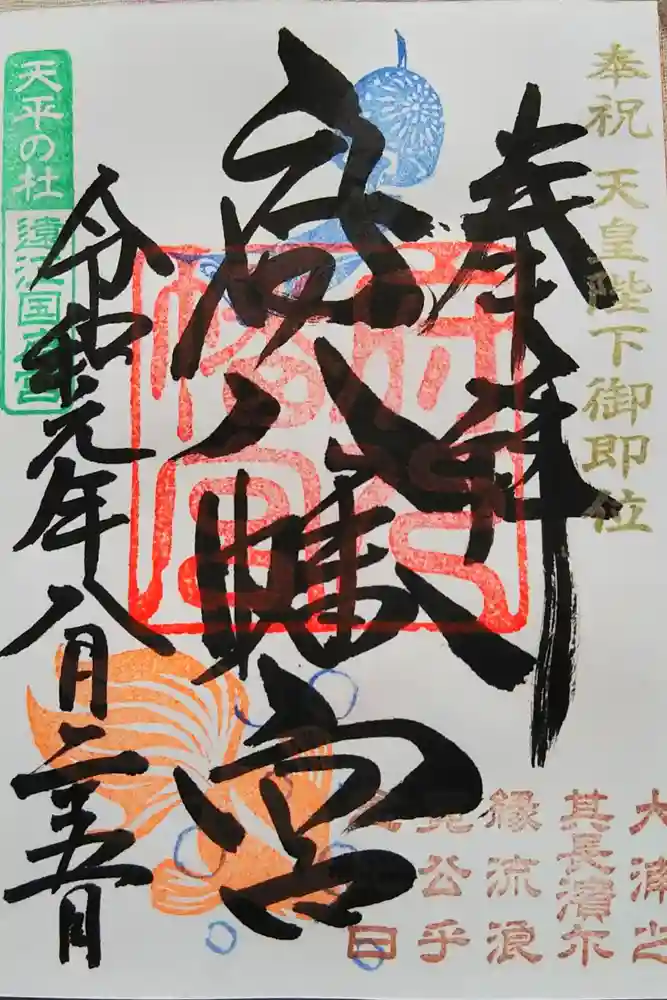 奉祝 天皇陛下御即位
奉拝
府八幡宮
令和元年八月二十五日
天平の杜
遠江国
府八
幡宮
大浦之
其長濱尓
縁流浪
寛公乎
念此日